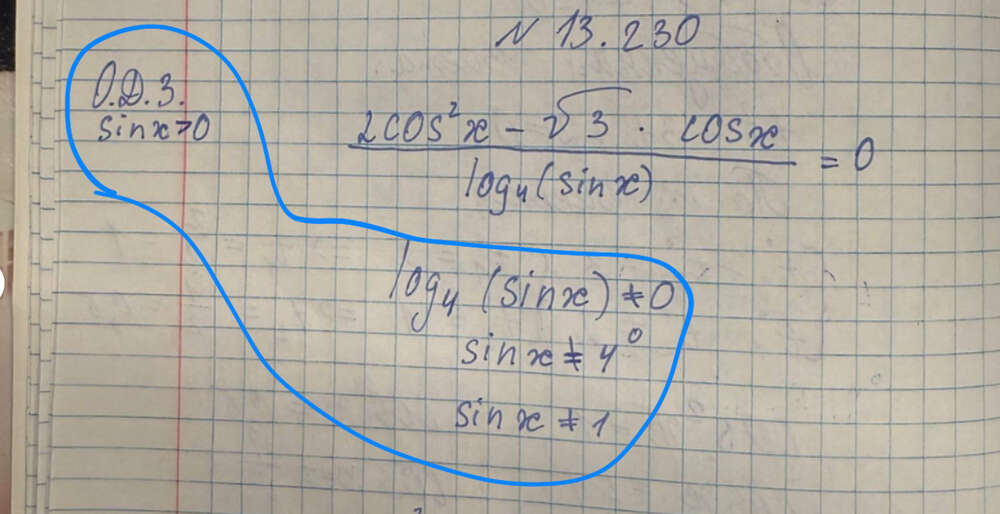 N 13.230
О.Д.З.
sinx>0
2cos²x - √3 · cosx
= 0
log₄(sinx)
log₄ (sinx) ≠ 0
sinx ≠ 4⁰
sinx ≠ 1